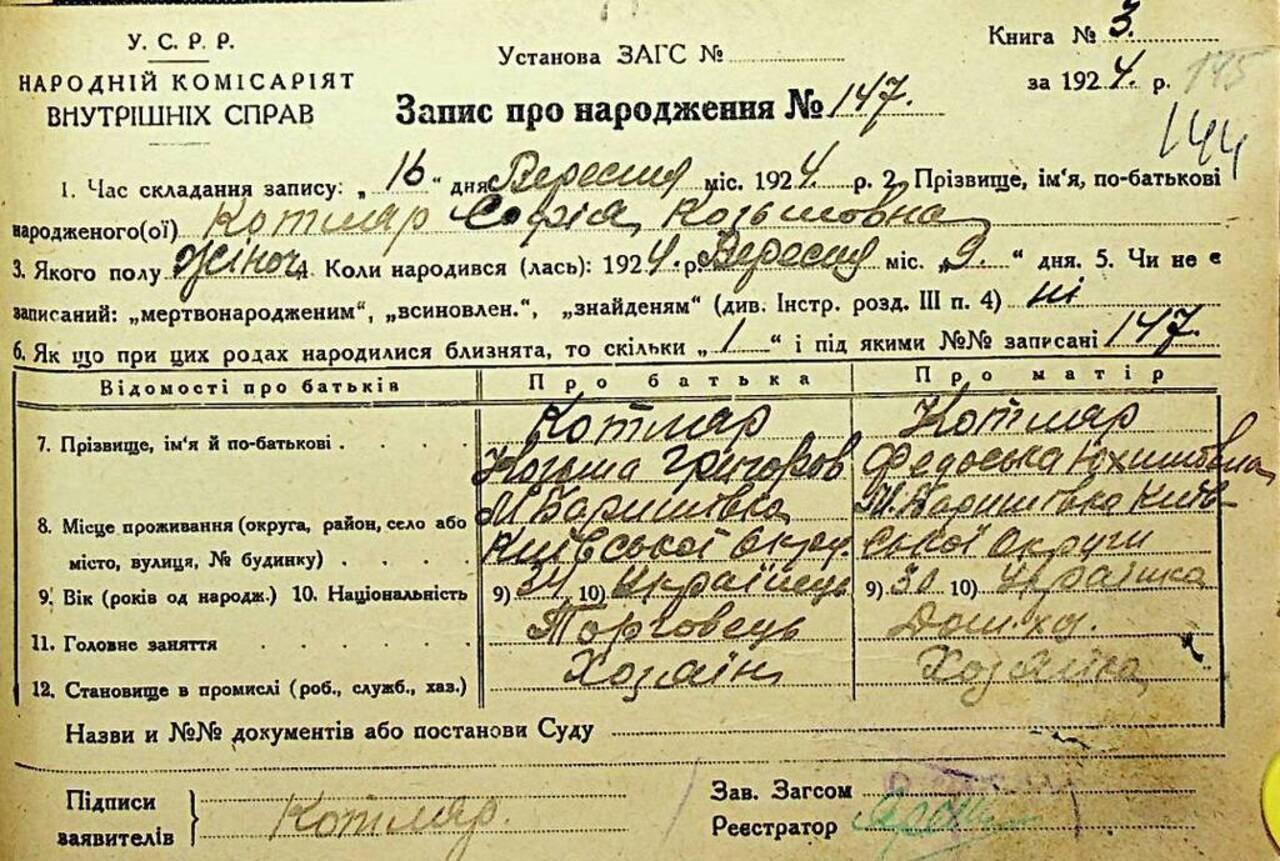 У. С. Р. Р.
НАРОДНІЙ КОМІСАРІЯТ
ВНУТРІШНІХ СПРАВ
Установа ЗАГС №
Книга № 3.
за 1924. р. 145
Запис про народження № 147.
144
1. Час складання запису: „ 16 “ дня Вересня міс. 1924. р. 2. Прізвище, ім'я, по-батькові
народженого(ої) Котляр Софія Козьмовна
3. Якого полу Жіноч. Коли народився (лась): 1924 р. Вересня міс. „ 9. “ дня. 5. Чи не є
записаний: „мертвонародженим“, „всиновлен.“, „знайденям“ (див. Інстр. розд. III п. 4) ні
6. Як що при цих родах народилися близнята, то скільки „ 1 “ і під якими №№ записані 147.
Відомості про батьків Про батька Про матір
Котляр Котляр
7. Прізвище, ім'я й по-батькові . . . .
Козьма Григоров Федоська Юхимовна
М. Баришівка М. Баришівка Київ-
8. Місце проживання (округа, район, село або
місто, вулиця, № будинку) . . . . Київської Окру. ської Округи
9. Вік (років од народж.) 10. Національність 9) 34 10) Українець 9) 30 10) Українка
11. Головне заняття . . . . . . Торговець Дом. хоз.
12. Становище в промислі (роб., служб., хаз.) Хозяїн Хозяйка
Назви и №№ документів або постанови Суду
Підписи
заявителів
Котляр.
Зав. Загсом
Реєстратор